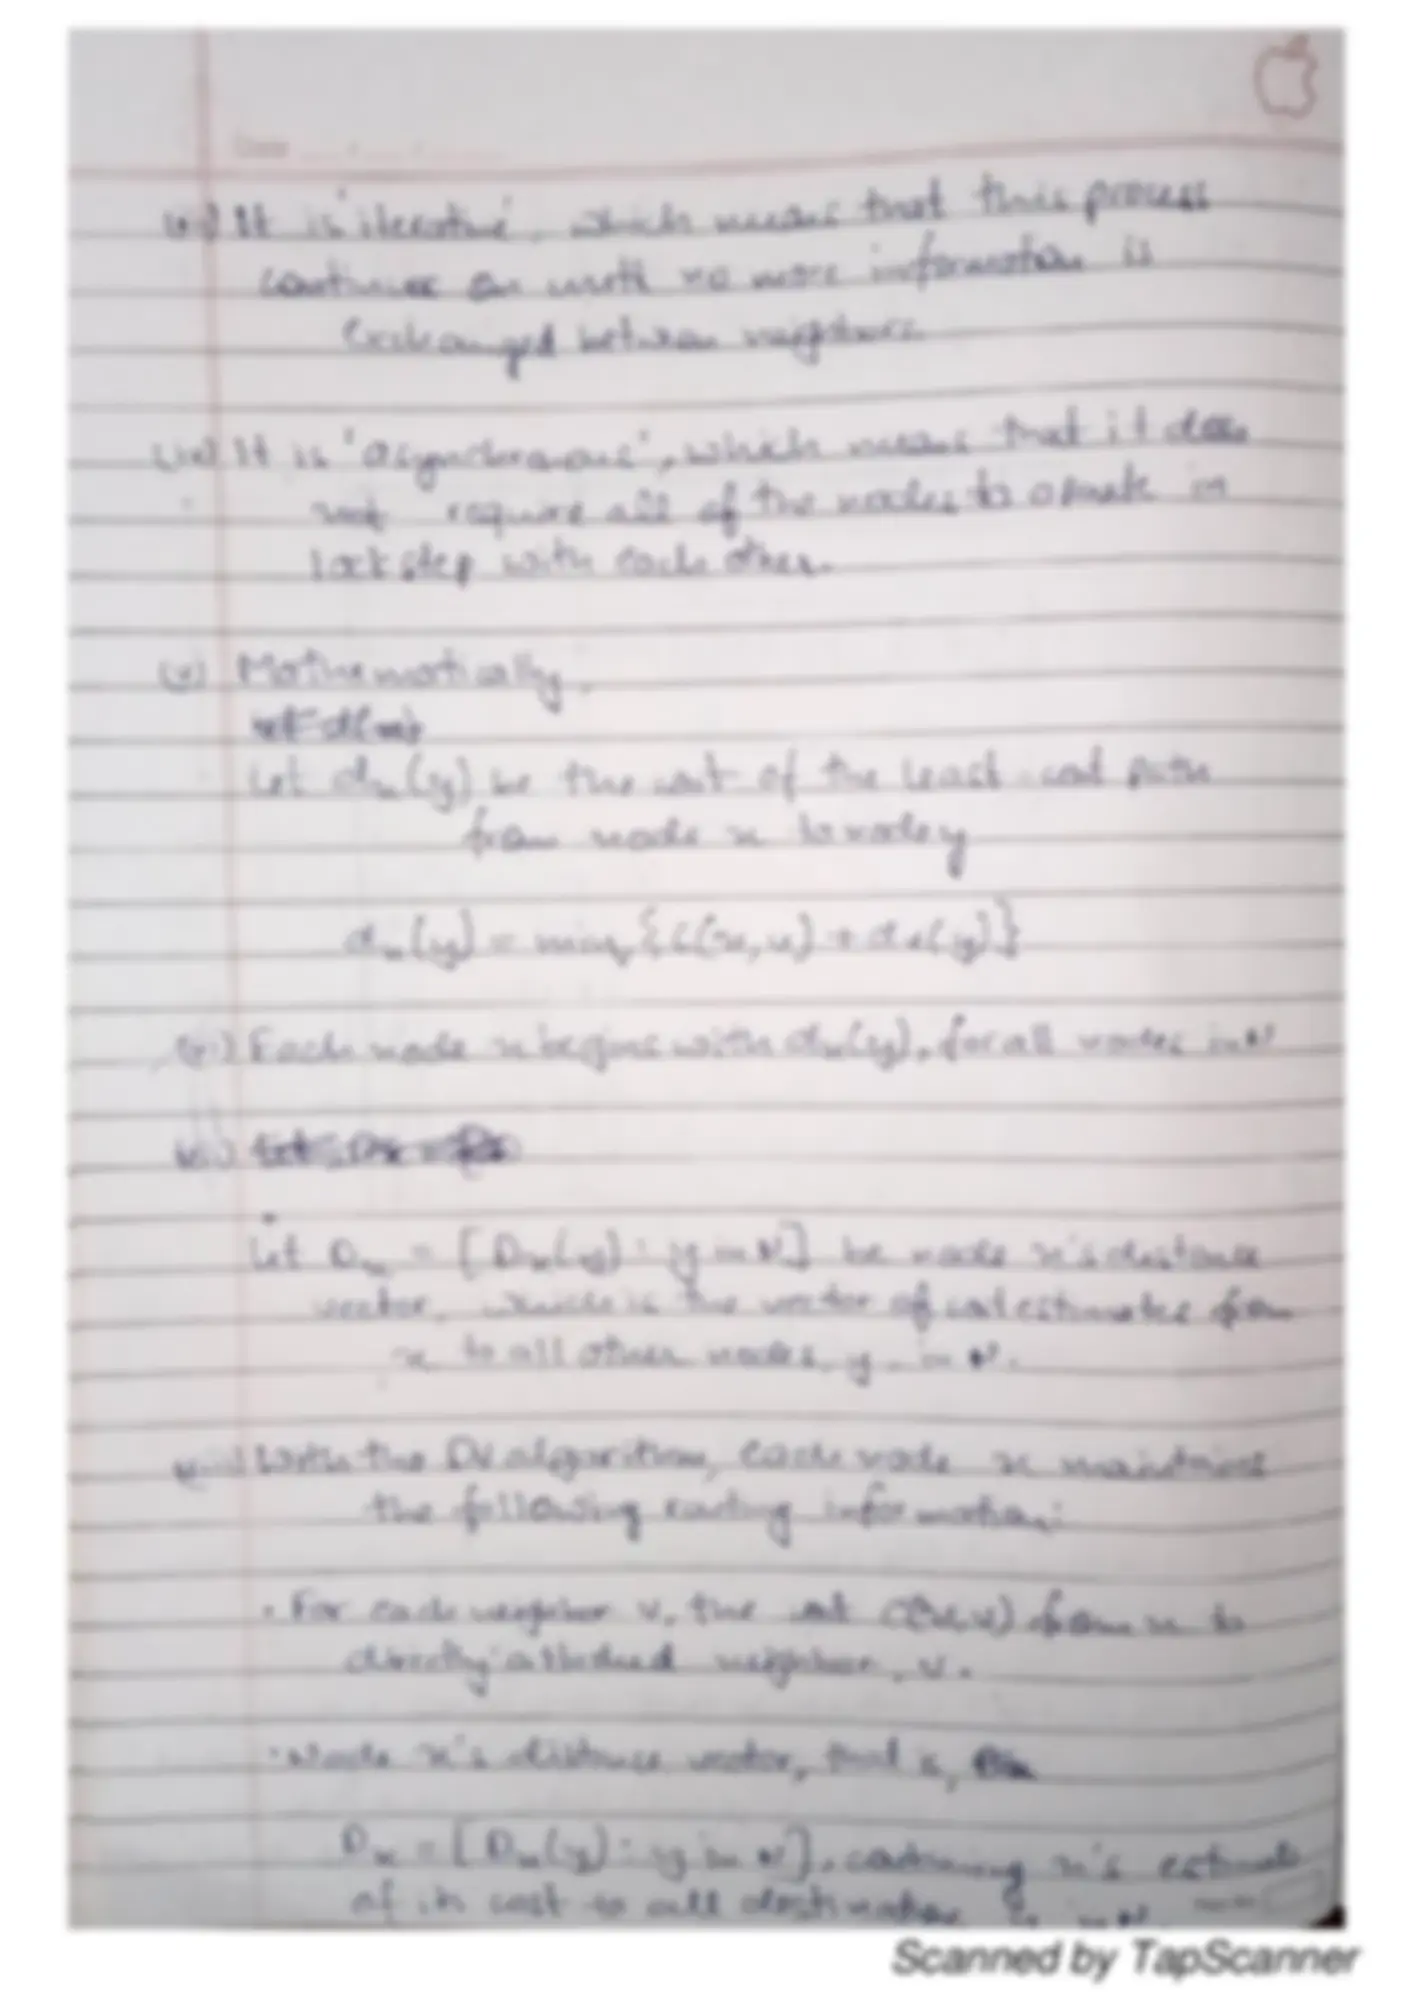 Date
(iii) It is 'iterative', which means that this process
continues on until no more information is
exchanged between neighbors
(iv) It is 'asynchronous', which means that it does
not require all of the nodes to operate in
lock step with each other.
(v) Mathematically,
Let dx(y) be the cost of the least-cost path
from node x to node y
dx(y) = minv {c(x,v) + dv(y)}
(vi) Each node x begins with dx(y), for all nodes in N
(vii)
Let Dx = [Dx(y) : y in N] be node x's distance
vector, which is the vector of cost estimates from
x to all other nodes, y, in N.
(viii) With the DV algorithm, each node x maintains
the following routing information:
• For each neighbor v, the cost c(x,v) from x to
directly attached neighbor, v.
• Node x's distance vector, that is,
Dx = [Dx(y) : y in N], containing x's estimate
of its cost to all destinations, y, in N.
Scanned by TapScanner